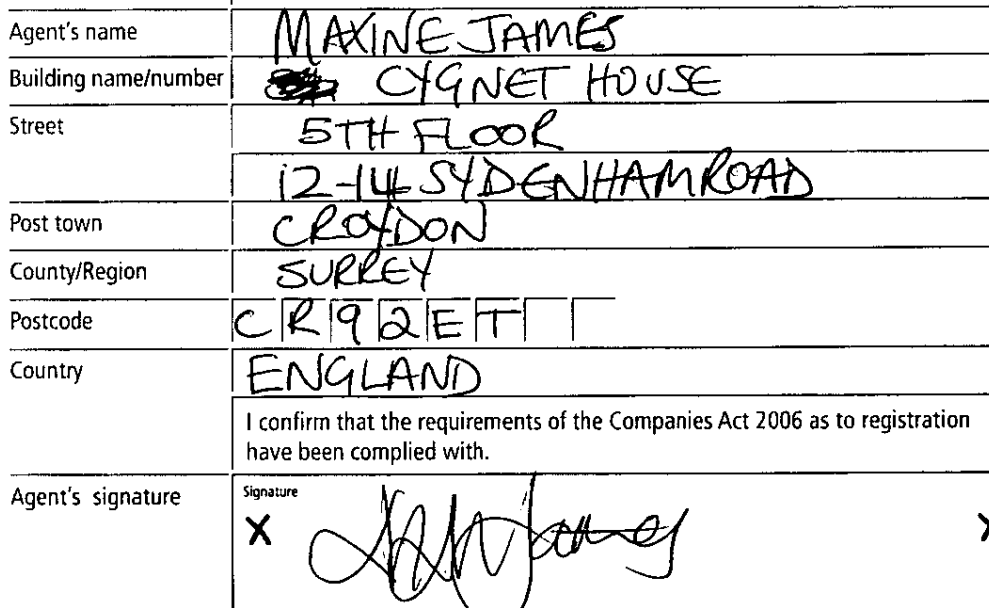 Agent's name MAXINE JAMES
Building name/number CYGNET HOUSE
Street 5TH FLOOR
12-14 SYDENHAM ROAD
Post town CROYDON
County/Region SURREY
Postcode CR92ET
Country ENGLAND
I confirm that the requirements of the Companies Act 2006 as to registration
have been complied with.
Agent's signature Signature
X James X